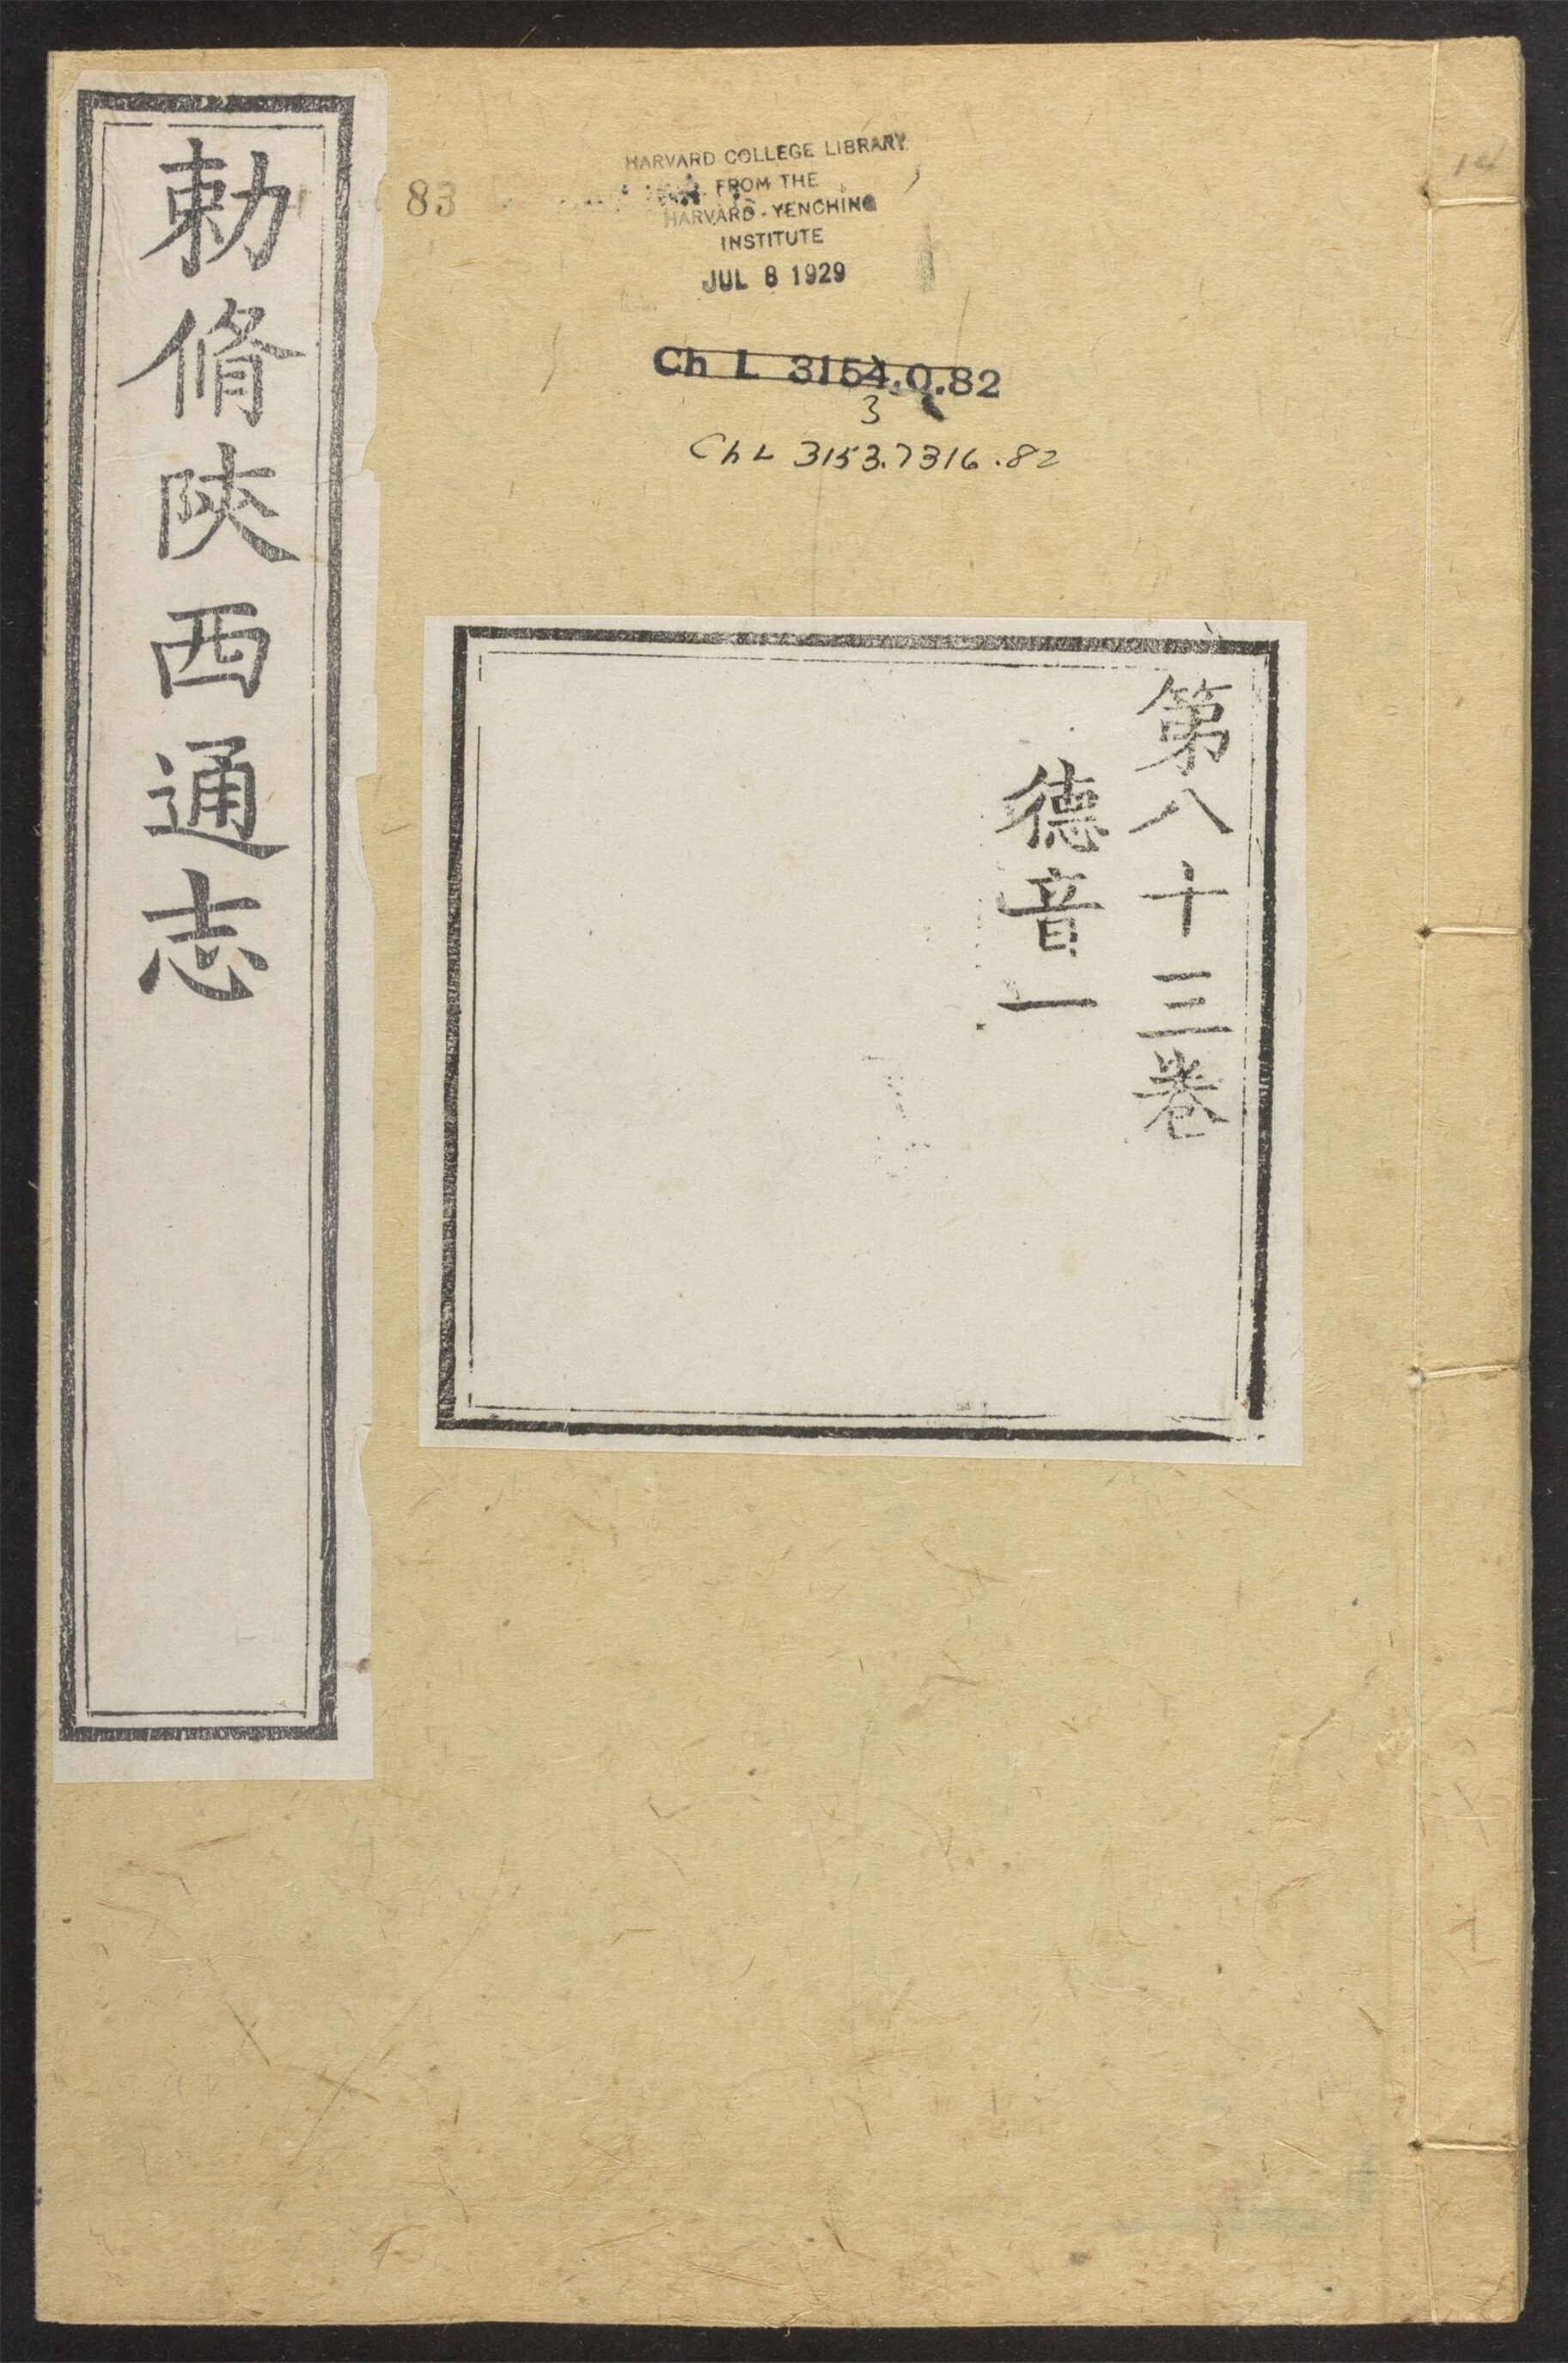 勅脩陜西通志
83
HARVARD COLLEGE LIBRARY
FROM THE
HARVARD-YENCHING
INSTITUTE
JUL 8 1929
Ch L 3154.0.82
3
Ch L 3153.7316.82
第八十三卷
德音一